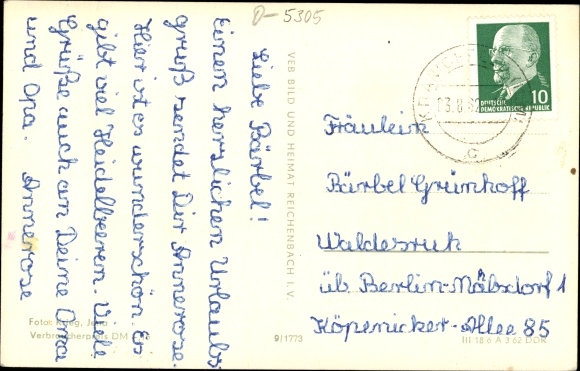 D-5305
Liebe Bärbel!
Einen herzlichen Urlaubs
gruß sendet Dir Annerose.
Hier ist es wunderschön. Es
gibt viel Heidelbeeren. Viele
Grüße auch an Deine Oma
und Opa. Annerose
VEB BILD UND HEIMAT REICHENBACH I. V.
DEUTSCHE
DEMOKRATISCHE REPUBLIK
10
c
Fräulein
Bärbel Grünhoff
Waldesruh
üb. Berlin-Mahlsdorf 1
Köpenicker-Allee 85
Foto: Krieg, Jena
Verbraucherpreis DM
9/1773
III 18 6 A 3 62 DDR